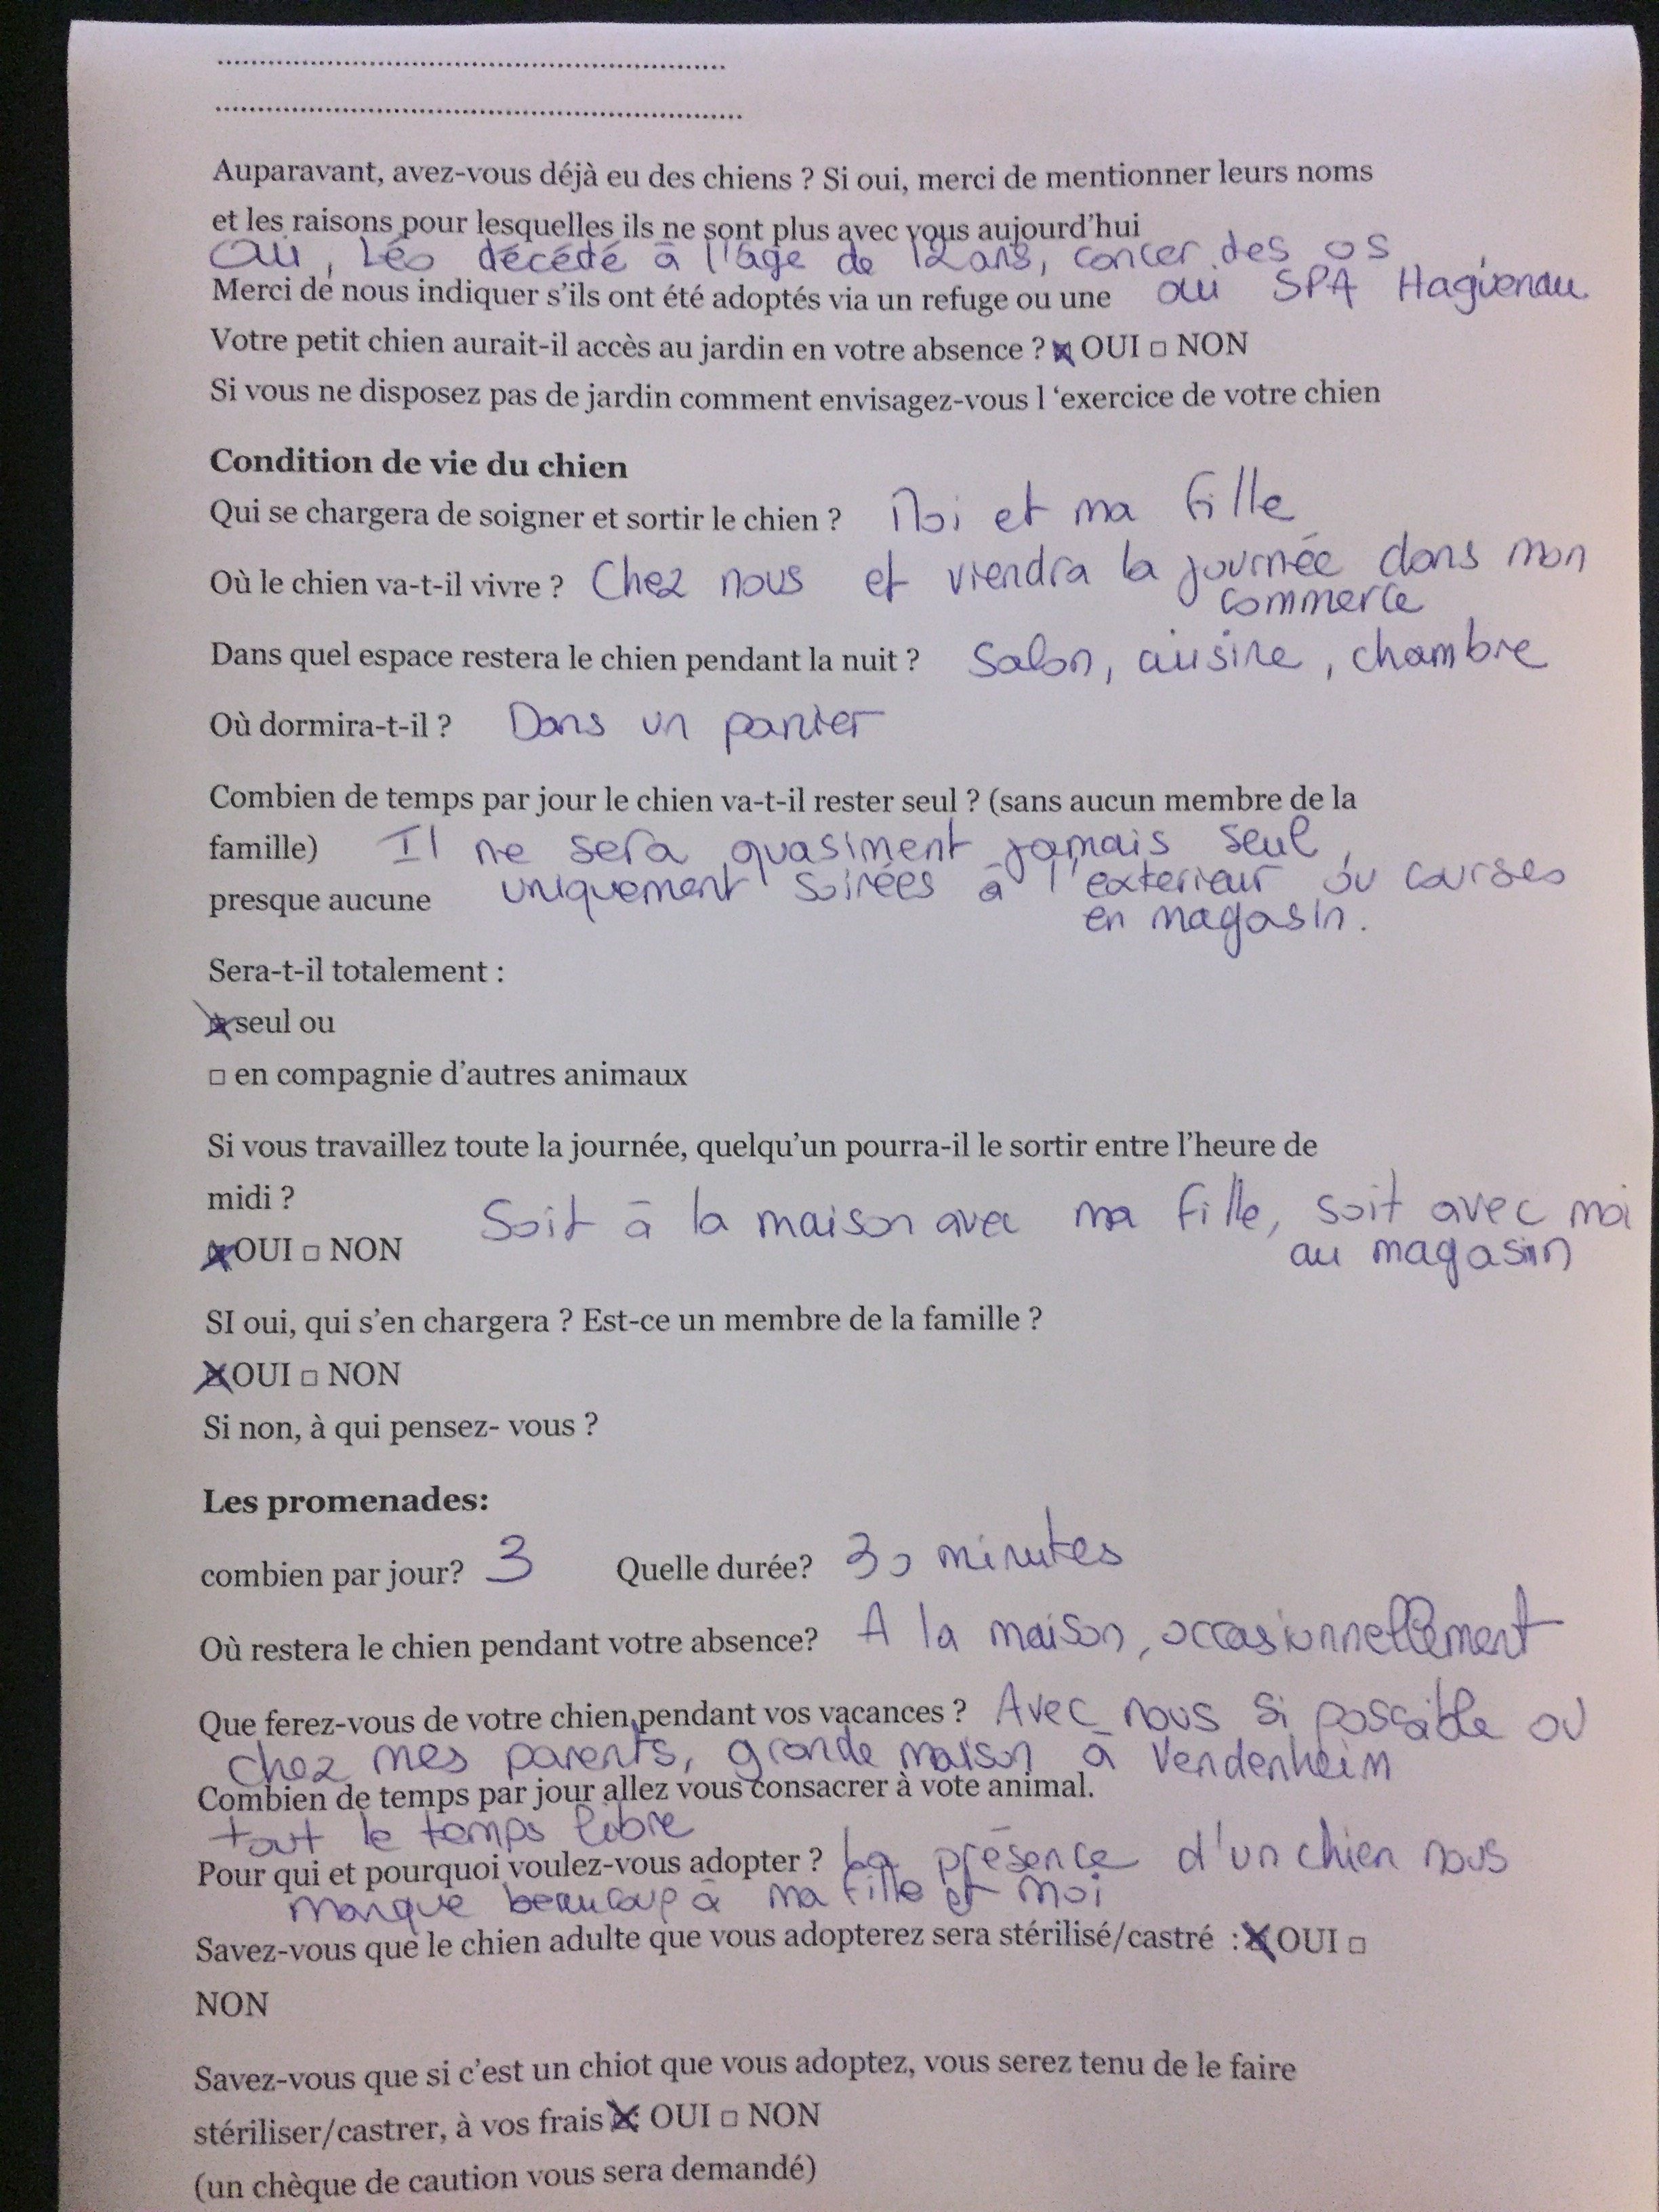 ........................................................
..........................................................
Auparavant, avez-vous déjà eu des chiens ? Si oui, merci de mentionner leurs noms
et les raisons pour lesquelles ils ne sont plus avec vous aujourd’hui
Oui, Léo décédé à l'âge de 12 ans, cancer des os
Merci de nous indiquer s’ils ont été adoptés via un refuge ou une oui SPA Haguenau
Votre petit chien aurait-il accès au jardin en votre absence ? ☒ OUI □ NON
Si vous ne disposez pas de jardin comment envisagez-vous l ‘exercice de votre chien
Condition de vie du chien
Qui se chargera de soigner et sortir le chien ? Moi et ma fille
Où le chien va-t-il vivre ? Chez nous et viendra la journée dans mon
commerce
Dans quel espace restera le chien pendant la nuit ? Salon, cuisine, chambre
Où dormira-t-il ? Dans un panier
Combien de temps par jour le chien va-t-il rester seul ? (sans aucun membre de la
famille) Il ne sera quasiment jamais seul,
presque aucune uniquement soirées à l'exterieur ou courses
en magasin.
Sera-t-il totalement :
☒ seul ou
□ en compagnie d’autres animaux
Si vous travaillez toute la journée, quelqu’un pourra-il le sortir entre l’heure de
midi ? Soit à la maison avec ma fille, soit avec moi
☒ OUI □ NON au magasin
SI oui, qui s’en chargera ? Est-ce un membre de la famille ?
☒ OUI □ NON
Si non, à qui pensez- vous ?
Les promenades:
combien par jour? 3 Quelle durée? 30 minutes
Où restera le chien pendant votre absence? A la maison, occasionnellement
Que ferez-vous de votre chien pendant vos vacances ? Avec nous si possible ou
chez mes parents, grande maison à Vendenheim
Combien de temps par jour allez vous consacrer à vote animal.
tout le temps libre
Pour qui et pourquoi voulez-vous adopter ? La présence d'un chien nous
manque beaucoup à ma fille et moi
Savez-vous que le chien adulte que vous adopterez sera stérilisé/castré : ☒ OUI □
NON
Savez-vous que si c’est un chiot que vous adoptez, vous serez tenu de le faire
stériliser/castrer, à vos frais ☒ OUI □ NON
(un chèque de caution vous sera demandé)